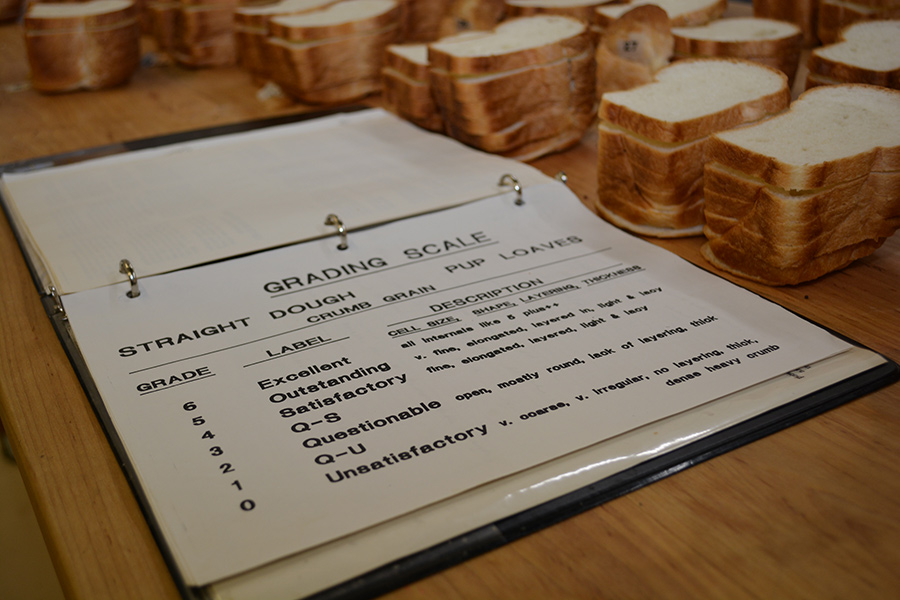 GRADING SCALE
STRAIGHT DOUGH PUP LOAVES
CRUMB GRAIN
GRADE LABEL DESCRIPTION
CELL SIZE, SHAPE, LAYERING, THICKNESS
6 Excellent all internals like 5 plus++
5 Outstanding v. fine, elongated, layered in, light & lacy
4 Satisfactory fine, elongated, layered, light & lacy
3 Q-S
2 Questionable open, mostly round, lack of layering, thick
1 Q-U
0 Unsatisfactory v. coarse, v. irregular, no layering, thick,
dense heavy crumb